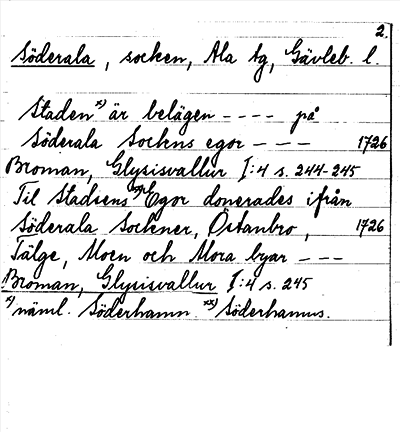 2.
Söderala, socken, Ala tg, Gävleb. l.
Staden x) är belägen - - - - på
Söderala Sockns egor - - - 1726
Broman, Glysisvallur I:4 s. 244-245
Til Stadsens xx) Egor donerades ifrån
Söderala Sockner, Östanbro, 1726
Tälge, Moen och Mora byar - - -
Broman, Glysisvallur I:4 s. 245
x) näml. Söderhamn. xx) Söderhamns.